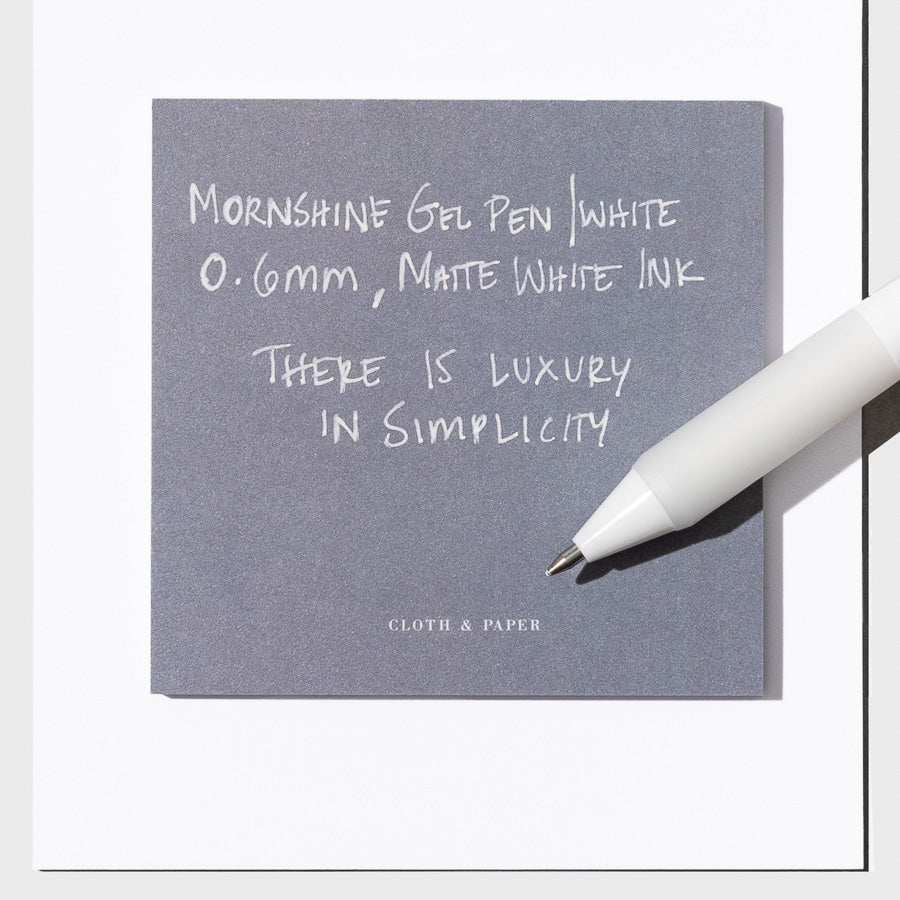 MORNSHINE GEL PEN | WHITE
0.6mm, MATTE WHITE INK
THERE IS LUXURY
IN SIMPLICITY
CLOTH & PAPER